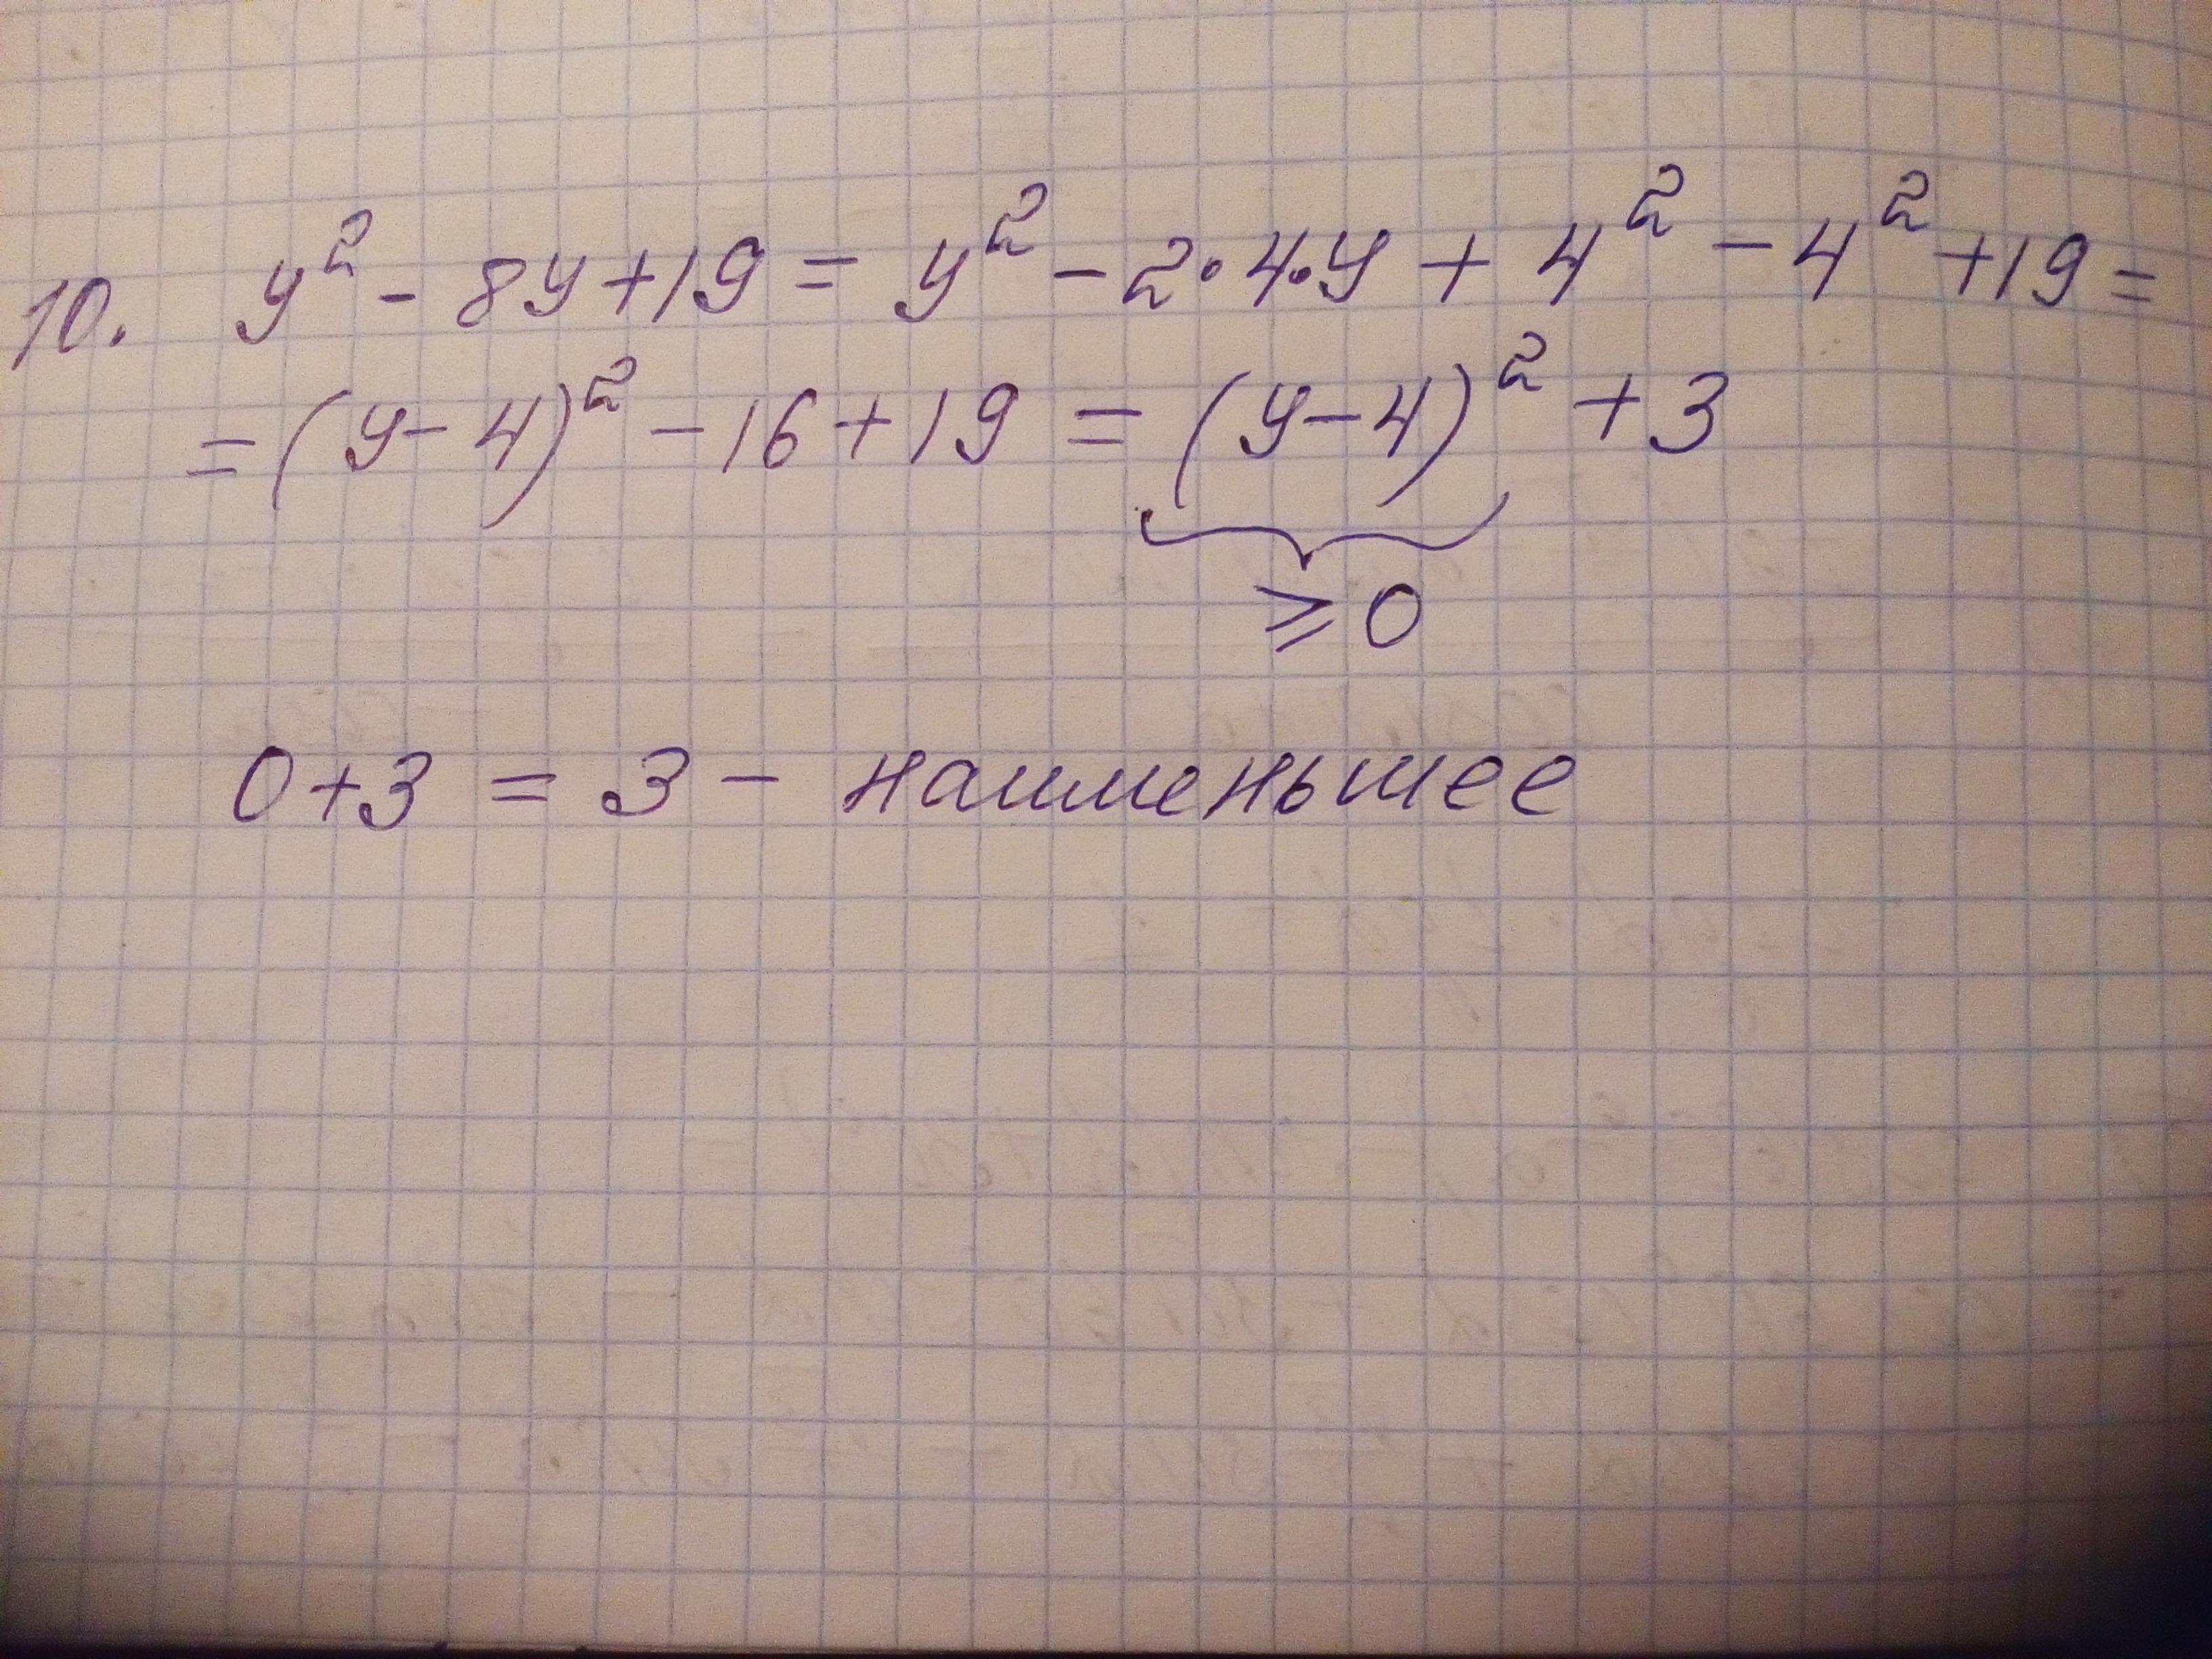 10. y² - 8y + 19 = y² - 2·4·y + 4² - 4² + 19 =
= (y - 4)² - 16 + 19 = (y - 4)² + 3
⩾ 0
0 + 3 = 3 - наименьшее